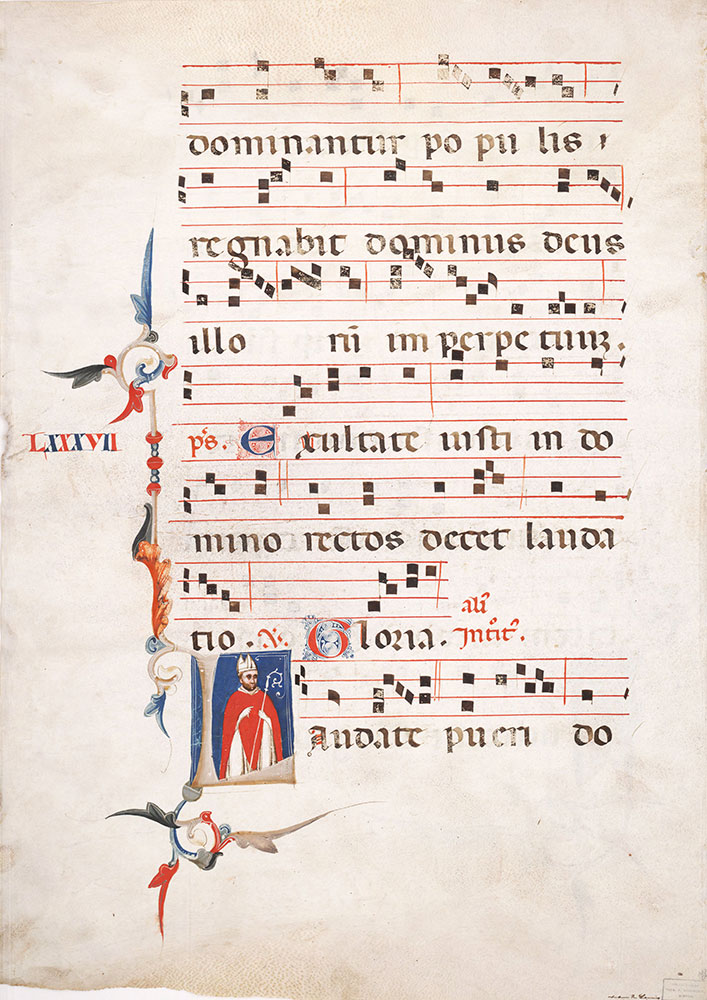 dominantur po pu lis
regnabit dominus deus
illo rū im perpe tuuz.
LXXXVII
ps. Exultate iusti in do
mino rectos decet lauda
tio. V. Gloria. ali' Intoit'.
Laudate pueri do